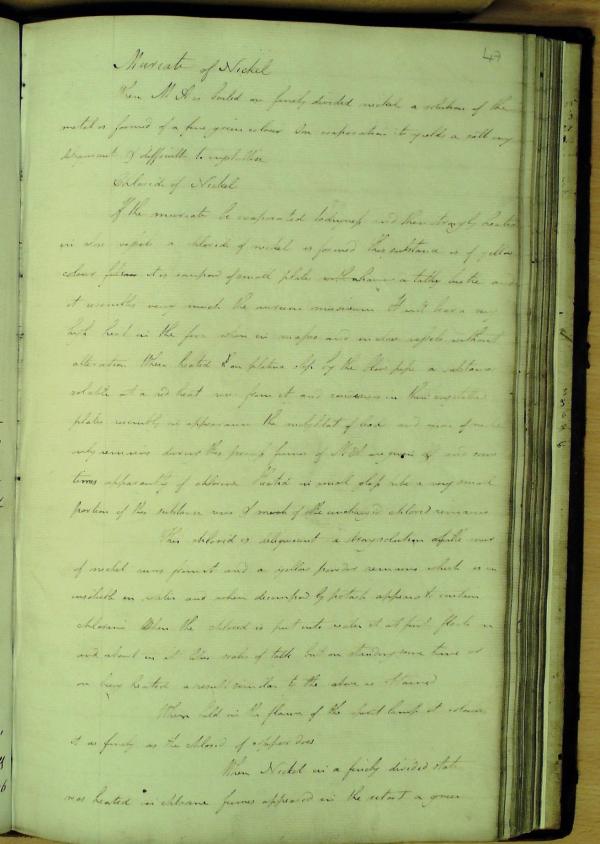 47
Muriate of Nickel
When M A is boiled on finely divided nickel a solution of the
metal is formed of a fine green colour On evaporation it yields a salt very
deliquescent & difficult to crystallise
Chloride of Nickel
If the muriate be evaporated to dryness and then strongly heated
in close vessels a chloride of nickel is formed This substance is of yellow
colour it is composed of small plates with a talky lustre and
it resembles very much the aurum musivum It will bear a very
high heat in the fire when in mass and in close vessels without
alteration When heated on platina slip by the blow pipe a substance
volatile at a red heat rises from it and condenses in thin
plates resembling in appearance the molybdat of lead and
only remains during this process fumes of M A are given off and some
times apparently of chlorine Heated in small glass tube a very small
portion of this substance rises & much of the unchanged chloride remains
This chloride is deliquescent a strong solution of the mur
of nickel runs from it and a yellow powder remains which is in
soluble in water and when decomposed by potash appears to contain
chlorine When the chloride is put into water it at first floats in
and about in it like scales of talk but on standing some time or
on being heated a result similar to the above is obtained
When held in the flame of the spirit lamp it colours
it as finely as the chloride of copper does
When Nickel in a finely divided state
was heated in chlorine fumes appeared in the retort a green